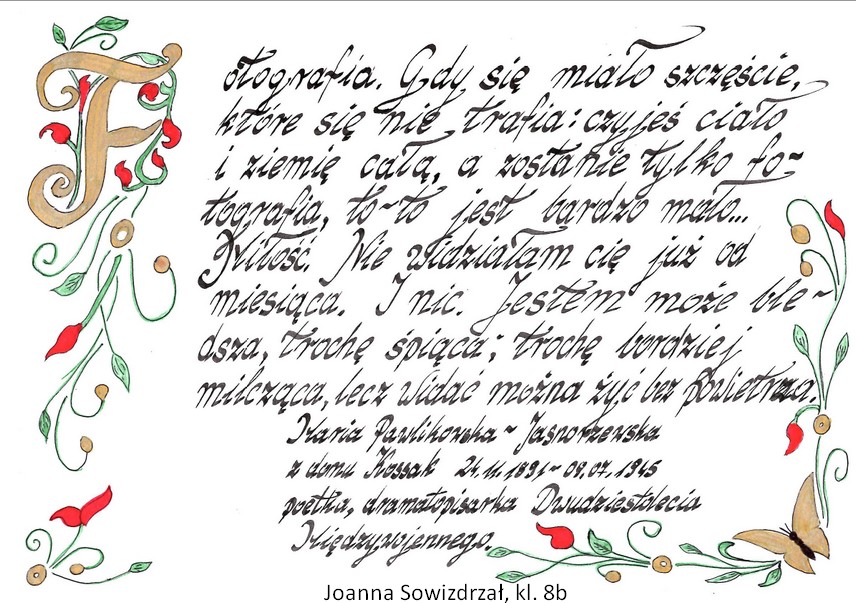 Fotografia. Gdy się miało szczęście,
które się nie trafia: czyjeś ciało
i ziemię całą, a zostanie tylko fo-
tografia, to-to jest bardzo mało...
Miłość. Nie widziałam cię już od
miesiąca. I nic. Jestem może ble-
dsza, trochę śpiąca; trochę bardziej
milcząca, lecz widać można żyć bez powietrza.
Maria Pawlikowska - Jasnorzewska
z domu Kossak 24.11.1891 - 09.07.1945
poetka, dramatopisarka Dwudziestolecia
Międzywojennego.
Joanna Sowizdrzał, kl. 8b